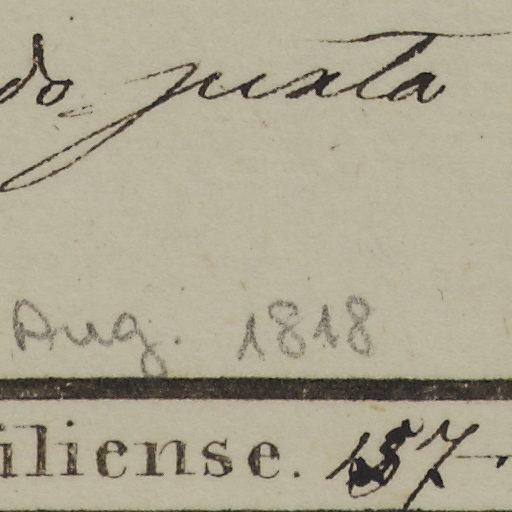 do= juxta
Aug. 1818
iliense. 157-.